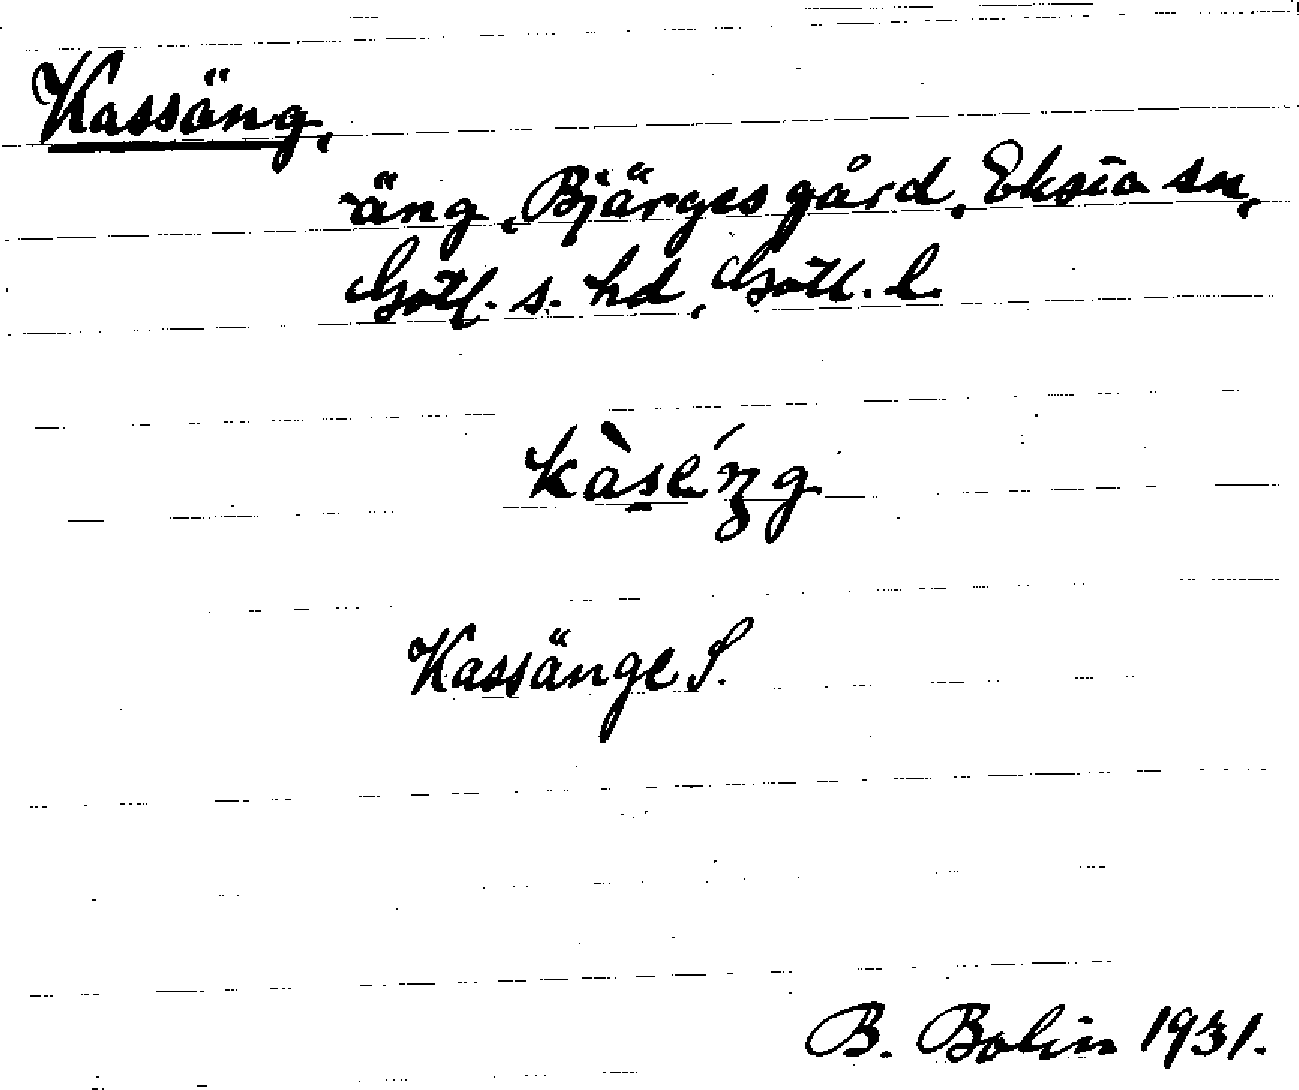 Kassäng,
äng, Bjärges gård, Eksta sn,
Gotl. s. hd, Gotl. l.
kàsèŋg
Kassänge S.
B. Bolin 1931.